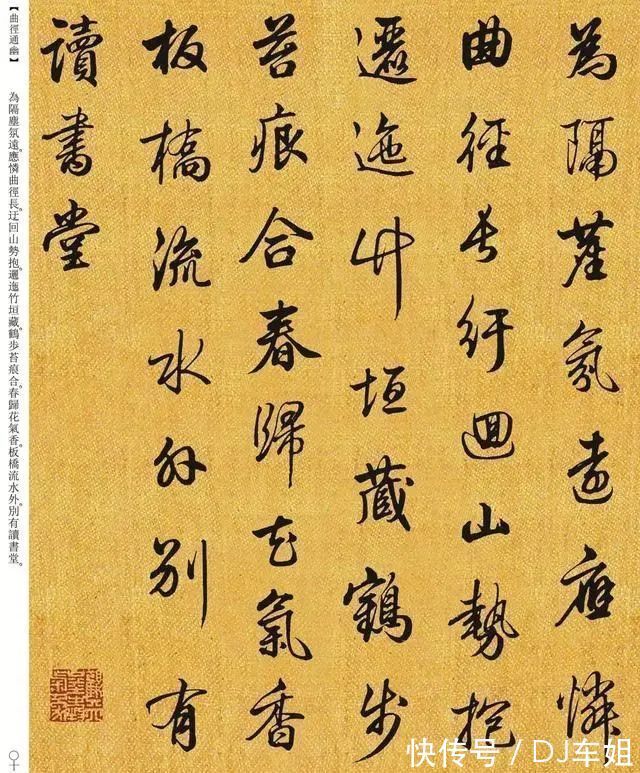 為隔塵氛遠應憐
曲徑長紆迴山勢抱
邐迤竹垣藏鶴步
苔痕合春歸花氣香
板橋流水外別有
讀書堂
【曲徑通幽】 為隔塵氛遠。應憐曲徑長。迂回山勢抱。邐迤竹垣藏。鶴步苔痕合。春歸花氣香。板橋流水外。別有讀書堂。
快传号 / DJ车姐